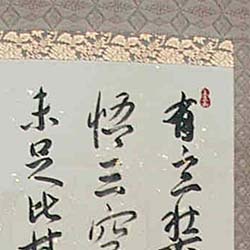 有玄奘
悟三空
未足比其